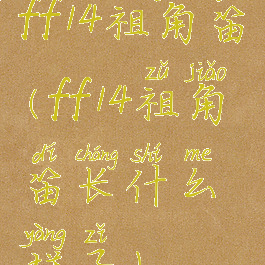 ff14祖角笛
zǔ jiǎo
(ff14祖角
dí cháng shí me
笛长什么
yàng zǐ
样子)